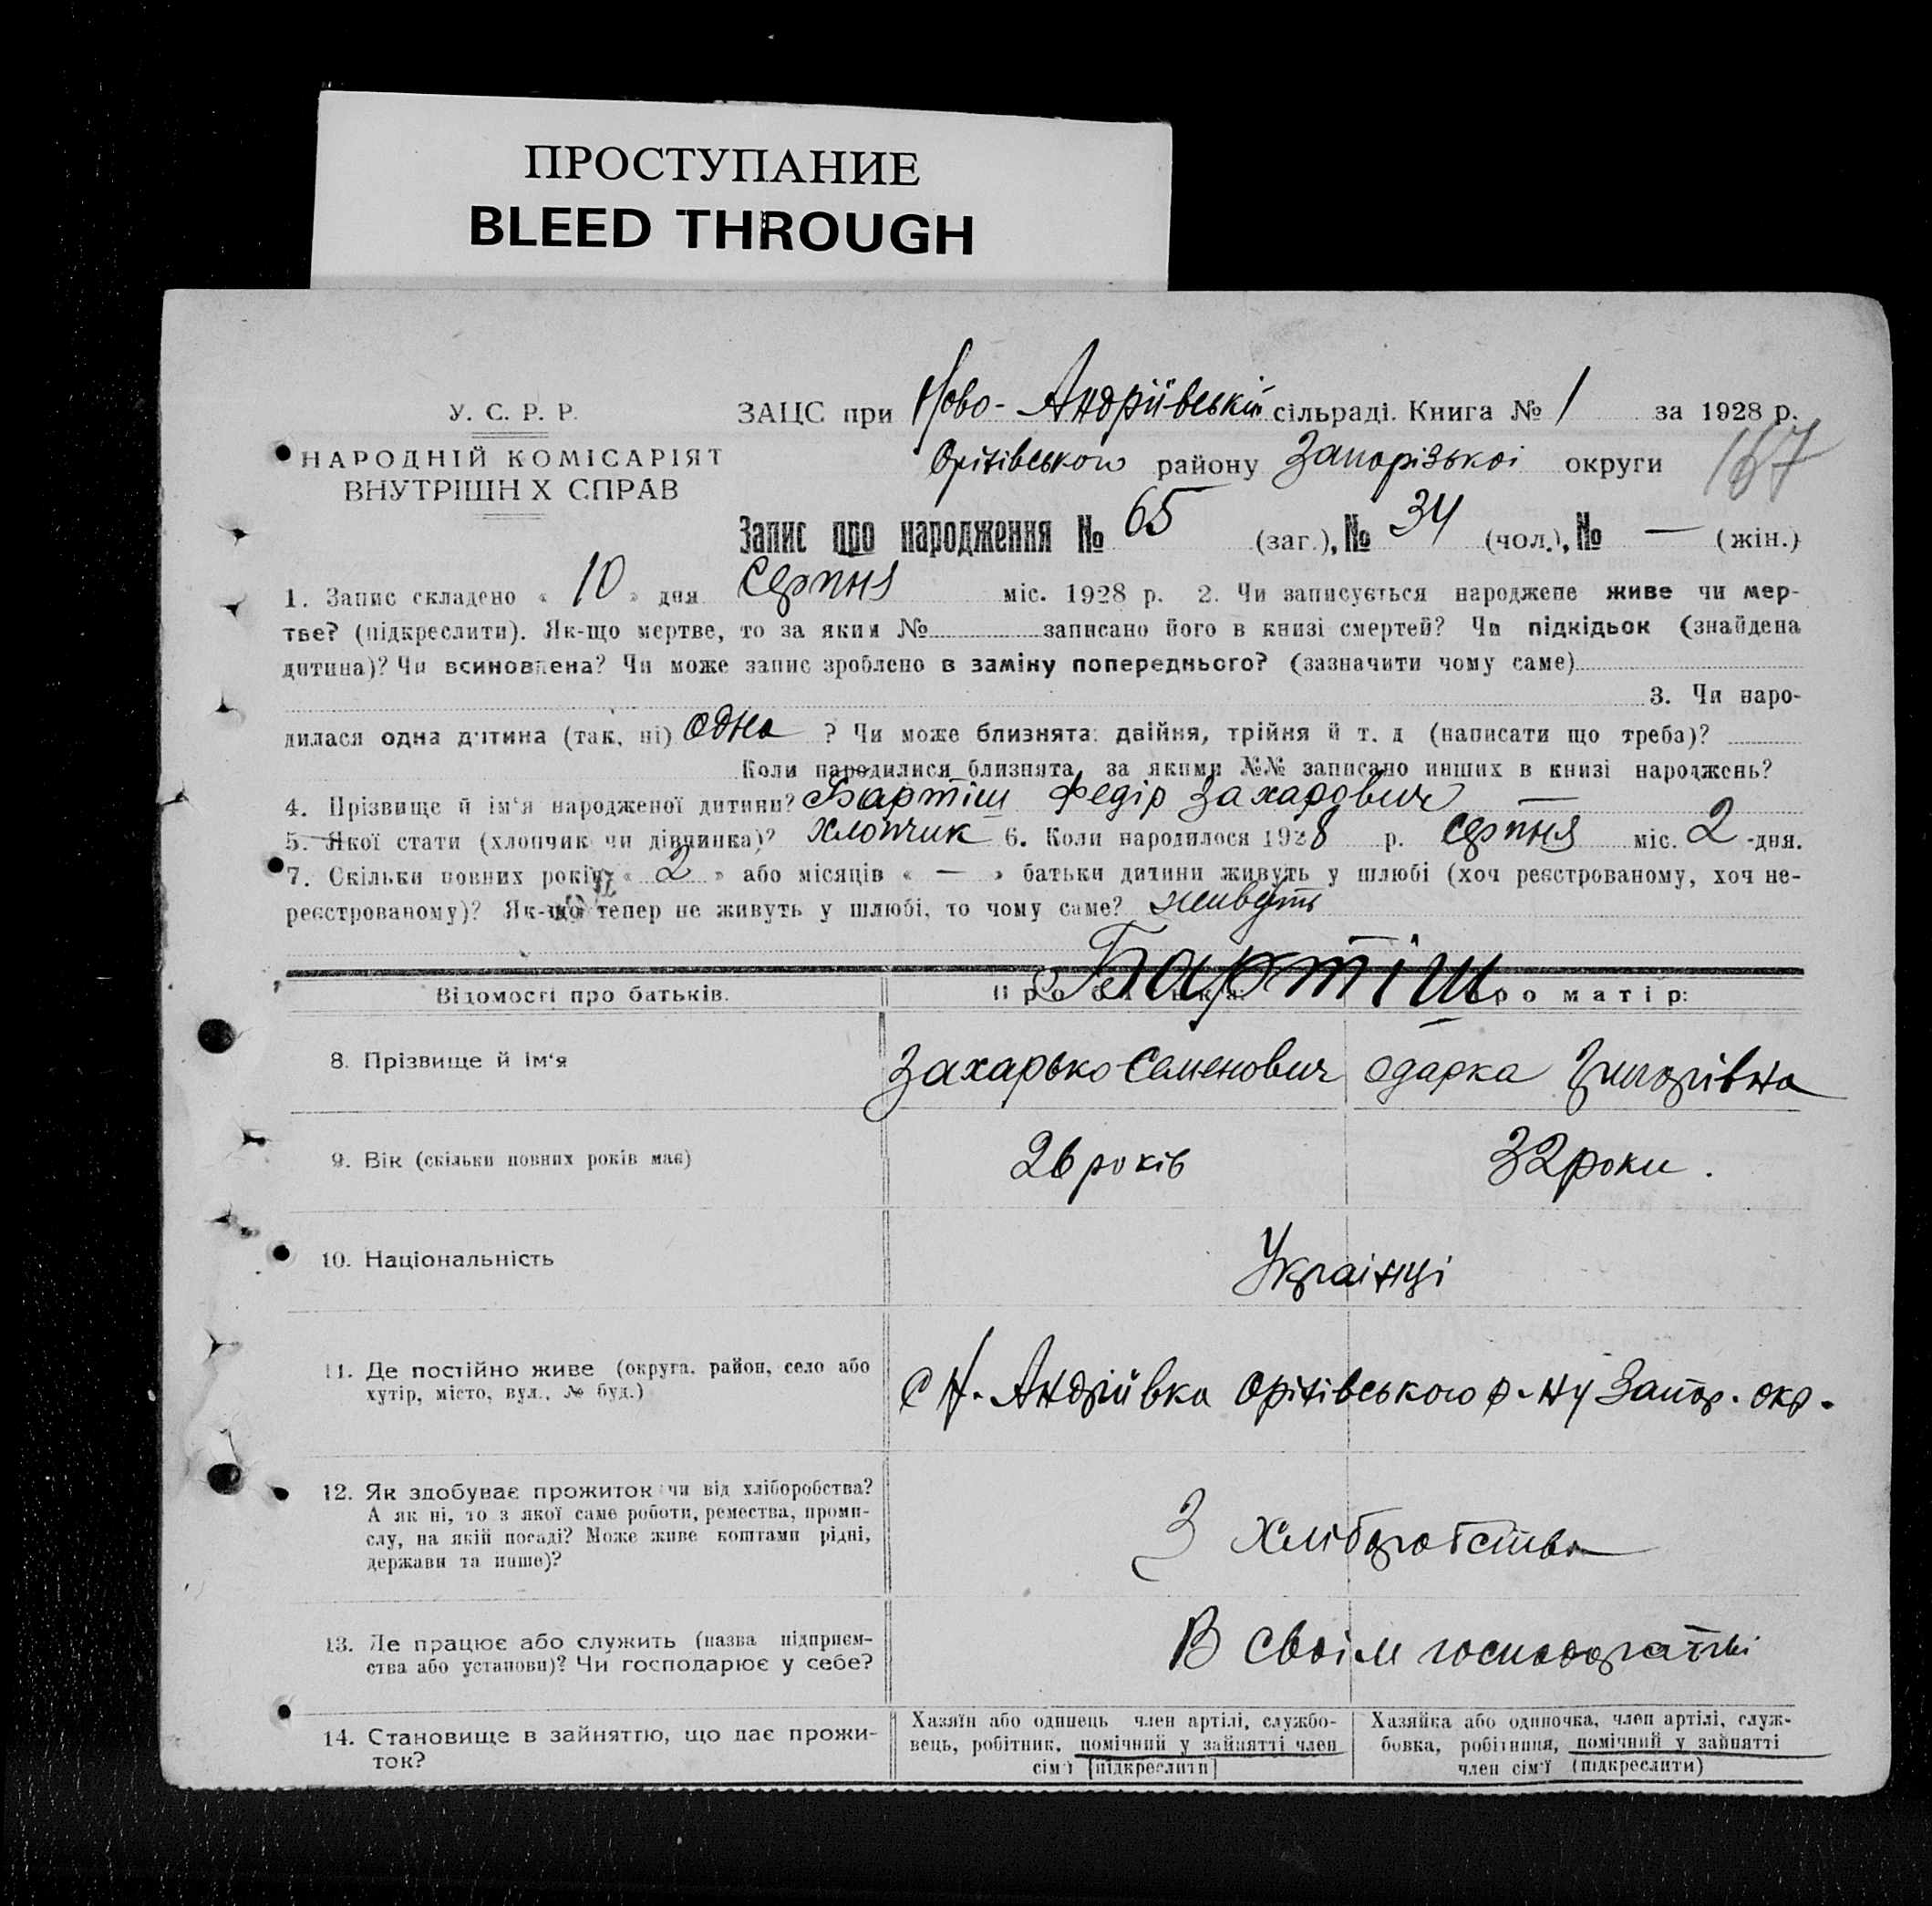 ПРОСТУПАНИЕ
BLEED THROUGH
У. С. Р. Р.
НАРОДНІЙ КОМІСАРІЯТ
ВНУТРІШН Х СПРАВ
ЗАЦС при Ново-Андріївській сільраді. Книга № 1 за 1928 р.
Оріхівського району Запорізькоі округи 167
Запис про народження № 65 (заг.), № 34 (чол.), № — (жін.)
1. Запис складено « 10 » дня Серпня міс. 1928 р. 2. Чи записується народжене живе чи мер-
тве? (підкреслити). Як-що мертве, то за яким № записано його в книзі смертей? Чи підкідьок (знайдена
дитина)? Чи всиновлена? Чи може запис зроблено в заміну попереднього? (зазначити чому саме)
3. Чи наро-
дилася одна дитина (так, ні) одна ? Чи може близнята: двійня, трійня й т. д (написати що треба)?
Коли народилися близнята, за якими №№ записано инших в книзі народжень?
4. Прізвище й ім‘я народженої дитини? Бартіш Федір Захарович —
5. Якої стати (хлопчик чи дівчинка)? хлопчик 6. Коли народилося 1928 р. серпня міс. 2 -дня.
7. Скільки повних років « 2 » або місяців « — » батьки дитини живуть у шлюбі (хоч реєстрованому, хоч не-
реєстрованому)? Як-що тепер не живуть у шлюбі, то чому саме? живуть
Бартіш
Відомості про батьків. Про батька: Про матір:
8. Прізвище й ім‘я Захарько Семенович Одарка Григорівна
9. Вік (скільки повних років має) 26 років 32 роки.
10. Національність Украінці
11. Де постійно живе (округа, район, село або
хутір, місто, вул., № буд.)
с Н.-Андріївка Оріхівського р-ну Запор. окр.
12. Як здобуває прожиток чи від хліборобства?
А як ні, то з якої саме роботи, ремества, проми-
слу, на якій посаді? Може живе коштами рідні,
держави та инше)?
З хліборобства
13. Де працює або служить (назва підприєм-
ства або установи)? Чи господарює у себе?
В своім господарстві
14. Становище в зайняттю, що дає прожи-
ток?
Хазяїн або одинець член артілі, службо-
вець, робітник, помічний у зайнятті член
сім‘ї (підкреслити)
Хазяйка або одиночка, член артілі, служ-
бовка, робітниця, помічний у зайнятті
член сім‘ї (підкреслити)